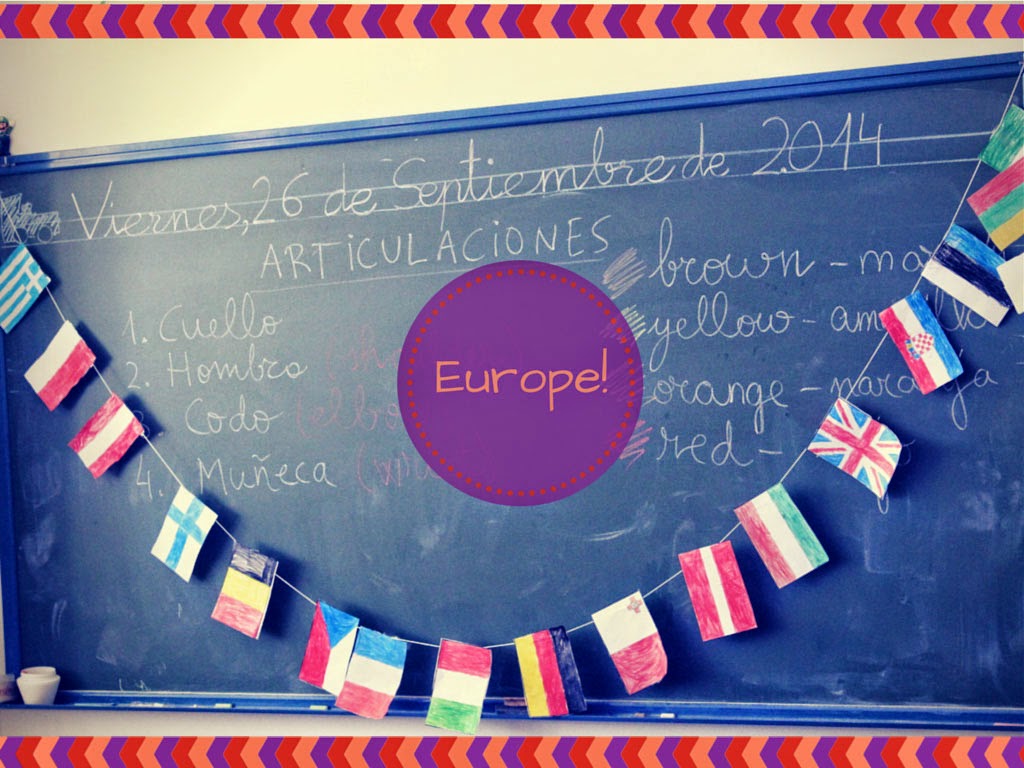 Viernes, 26 de Septiembre de 2.014
ARTICULACIONES
1. Cuello
2. Hombro
Codo (elbo
4. Muñeca
brown - ma
yellow - am
orange - naranja
red -
Europe!